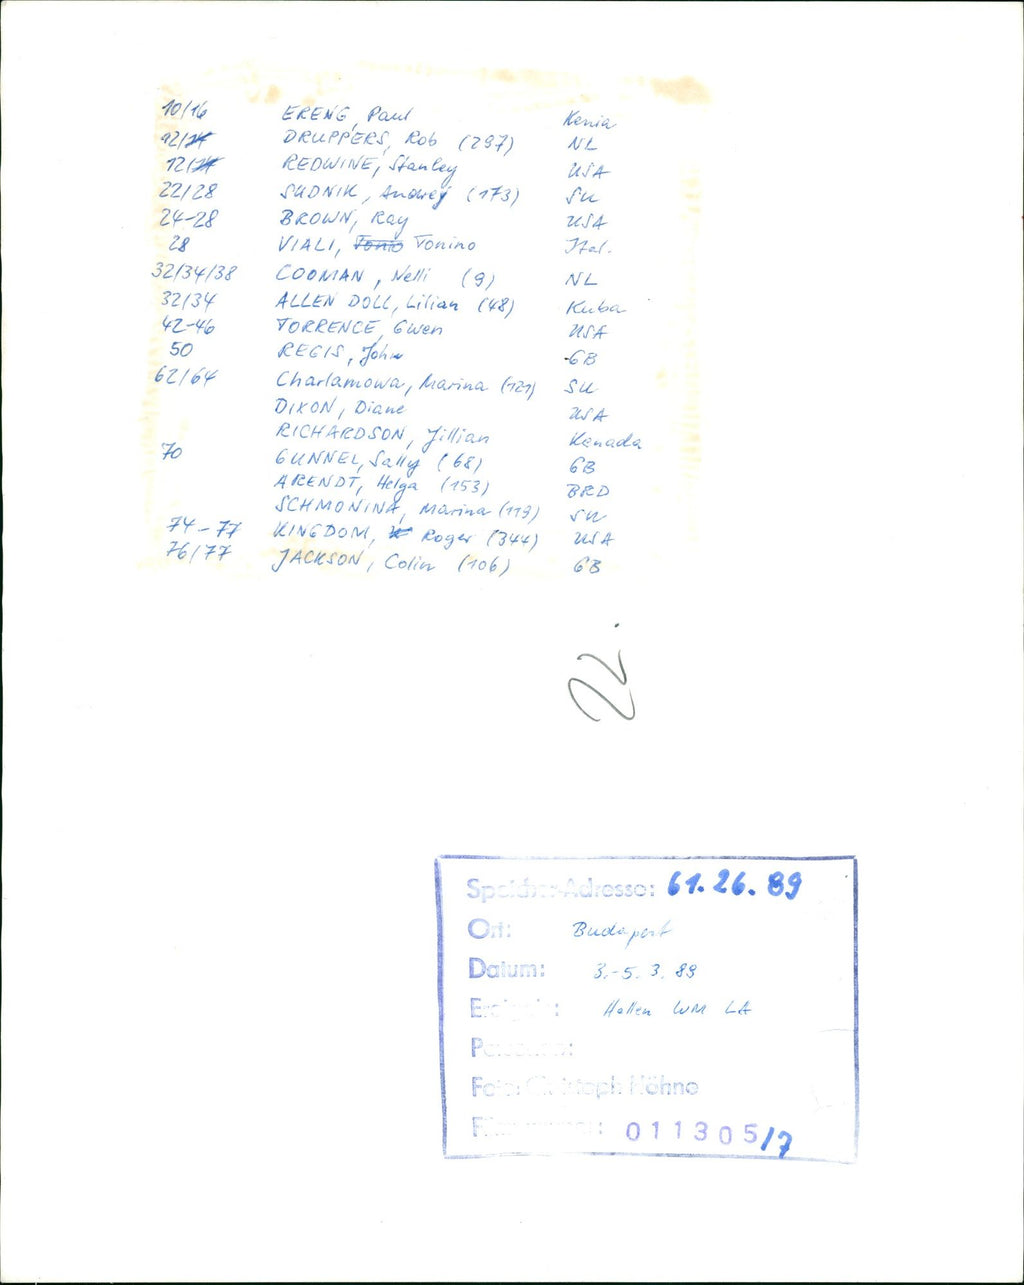 10/16 ERENG, Paul Kenia
12/14 DRUPPERS, Rob (297) NL
12/14 REDWINE, Stanley USA
22/28 SUDNIK, Andrey (173) SU
24-28 BROWN, Ray USA
28 VIALI, Tonio Tonino Ital.
32/34/38 COOMAN, Nelli (9) NL
32/34 ALLEN DOLL, Lilian (48) Kuba
42-46 TORRENCE, Gwen USA
50 REGIS, John GB
62/64 Charlamowa, Marina (121) SU
DIXON, Diane USA
RICHARDSON, Jillian Kanada
70 GUNNEL, Sally (68) GB
ARENDT, Helga (153) BRD
SCHMONINA, Marina (119) SU
74-77 KINGDOM, Roger (344) USA
76/77 JACKSON, Colin (106) GB
22.
Speicher-Adresse: 61.26.89
Ort: Budapest
Datum: 3.-5.3.89
Ereignis: Hallen WM LA
Personen:
Foto: Christoph Höhne
011305/7